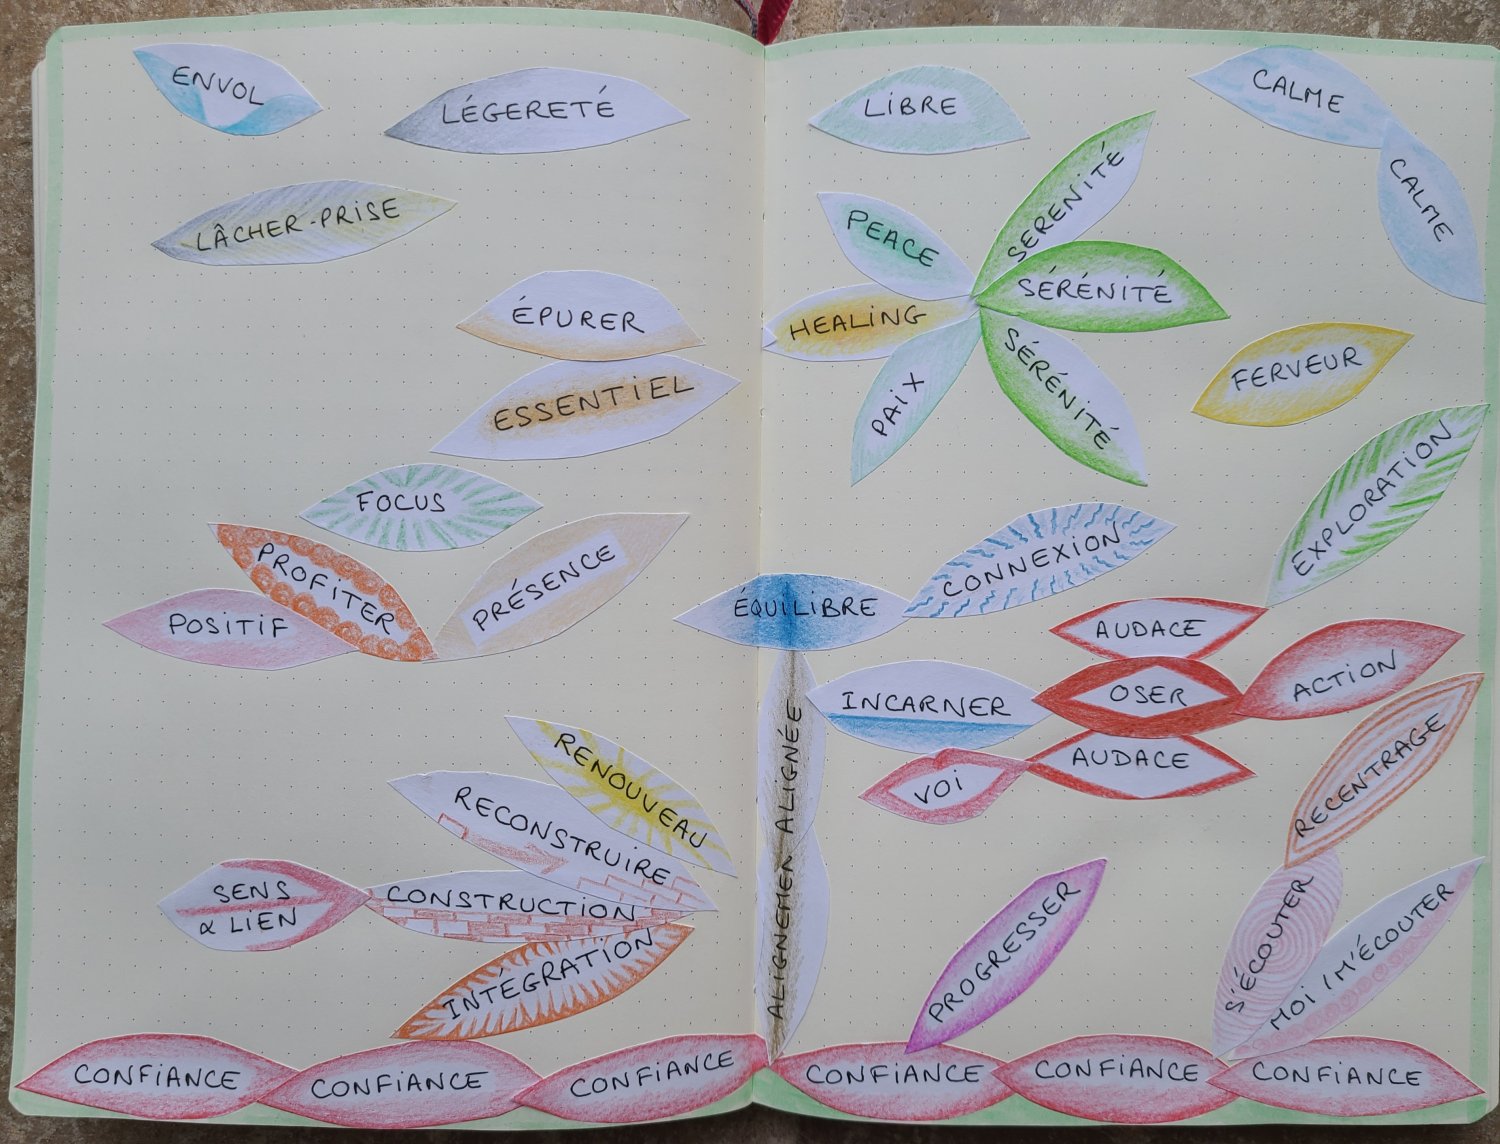 ENVOL
LÉGERETÉ
LÂCHER-PRISE
ÉPURER
ESSENTIEL
FOCUS
PROFITER
PRÉSENCE
POSITIF
RENOUVEAU
RECONSTRUIRE
SENS
& LIEN
CONSTRUCTION
INTÉGRATION
CONFIANCE
CONFIANCE
CONFIANCE
LIBRE
CALME
CALME
SERENITÉ
PEACE
SÉRÉNITÉ
HEALING
PAIX
SÉRÉNITÉ
FERVEUR
EXPLORATION
CONNEXION
ÉQUILIBRE
AUDACE
INCARNER
OSER
ACTION
AUDACE
VOI
RECENTRAGE
ALIGNEMEN ALIGNÉE
PROGRESSER
S'ÉCOUTER
MOI / M'ÉCOUTER
CONFIANCE
CONFIANCE
CONFIANCE